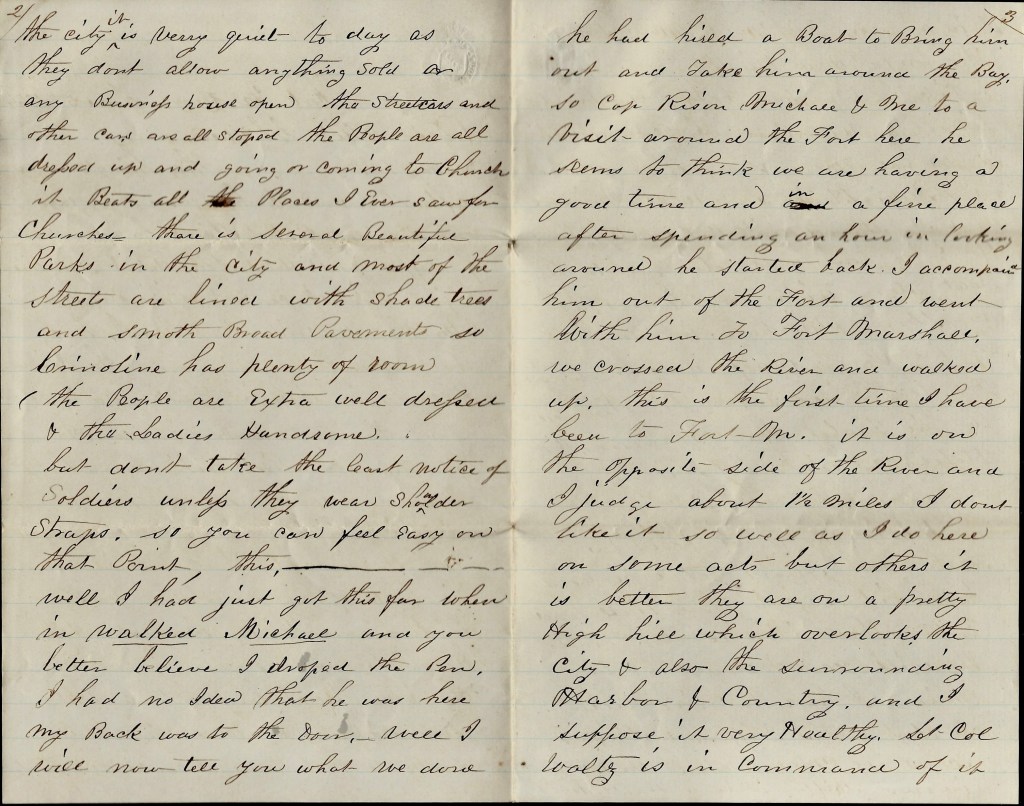 2/
the city it is verry quiet to day as
they dont allow anything sold or
any Business house open the Streetcars and
other cars are all stoped the People are all
dressed up and going or coming to Church
it Beats all the Places I Ever saw for
Churches = there is several Beautiful
Parks in the city and most of the
streets are lined with shade trees
and smoth Broad Pavements so
Crinoline has plenty of room
( the People are Extra well dressed
& the Ladies Handsome.
but dont take the least notice of
Soldiers unless they wear Sholder
Straps. so you can feel Easy on
that Point, this,
well I had just got this far when
in walked Michael and you
better believe I droped the Pen.
I had no Idea that he was here
my Back was to the Door, – well I
will now tell you what we done
3
he had hired a Boat to Bring him
out and Take him around the Bay.
so Cap Rison Michael & Me to a
visit around the Fort here he
seems to think we are having a
good time and in a fine place
after spending an hour in looking
around he started back. I accompaind
him out of the Fort and went
With him To Fort Marshall,
we crossed the River and walked
up. this is the first time I have
been to Fort M. it is on
the opposite side of the River and
I judge about 1½ miles I dont
like it so well as I do here
on some acts but others it
is better they are on a pretty
High hill which overlooks the
City & also the surrounding
Harbor & Country. and I
suppose it very Healthy. Lt Col
Waltz is in Command of it